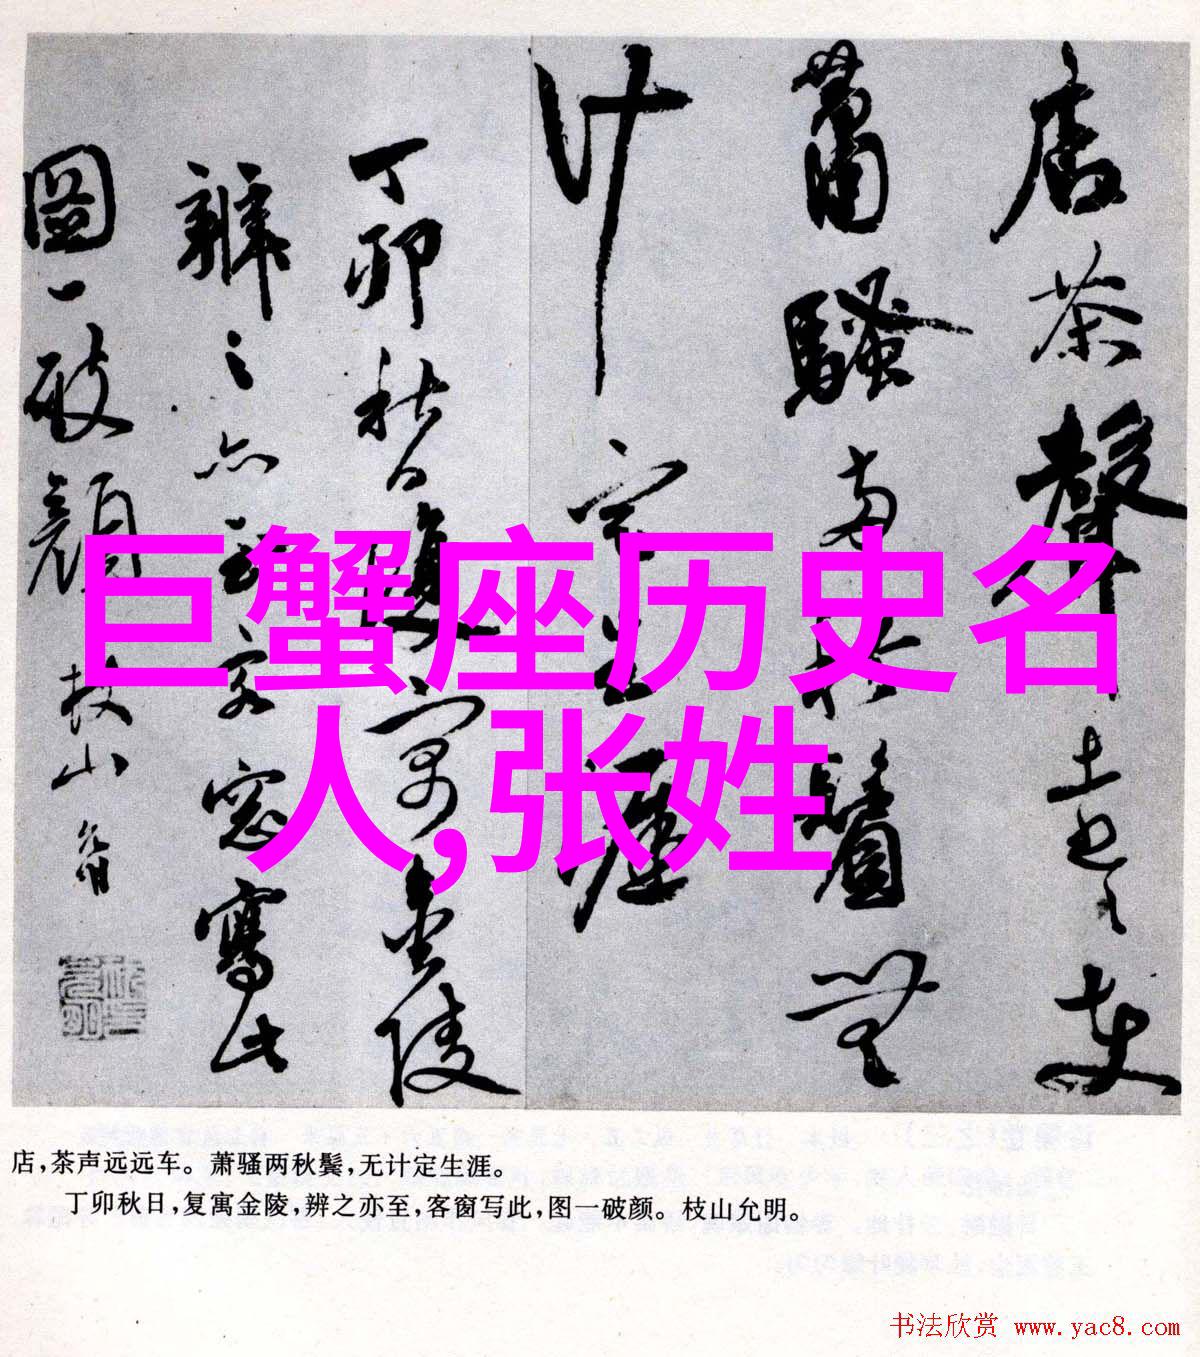 店茶声遠遠車
蕭騷両秋鬢無
计定生涯
丁卯秋日復寓金陵
辨之亦至客窓寫此
圖一破顔 枝山允明
巨蟹座历史名
人,张姓
店,茶声远远车。萧骚两秋鬓,无计定生涯。
丁卯秋日,复寓金陵,辨之亦至,客窗写此,图一破颜。枝山允明。
书法欣赏 www.yac8.com